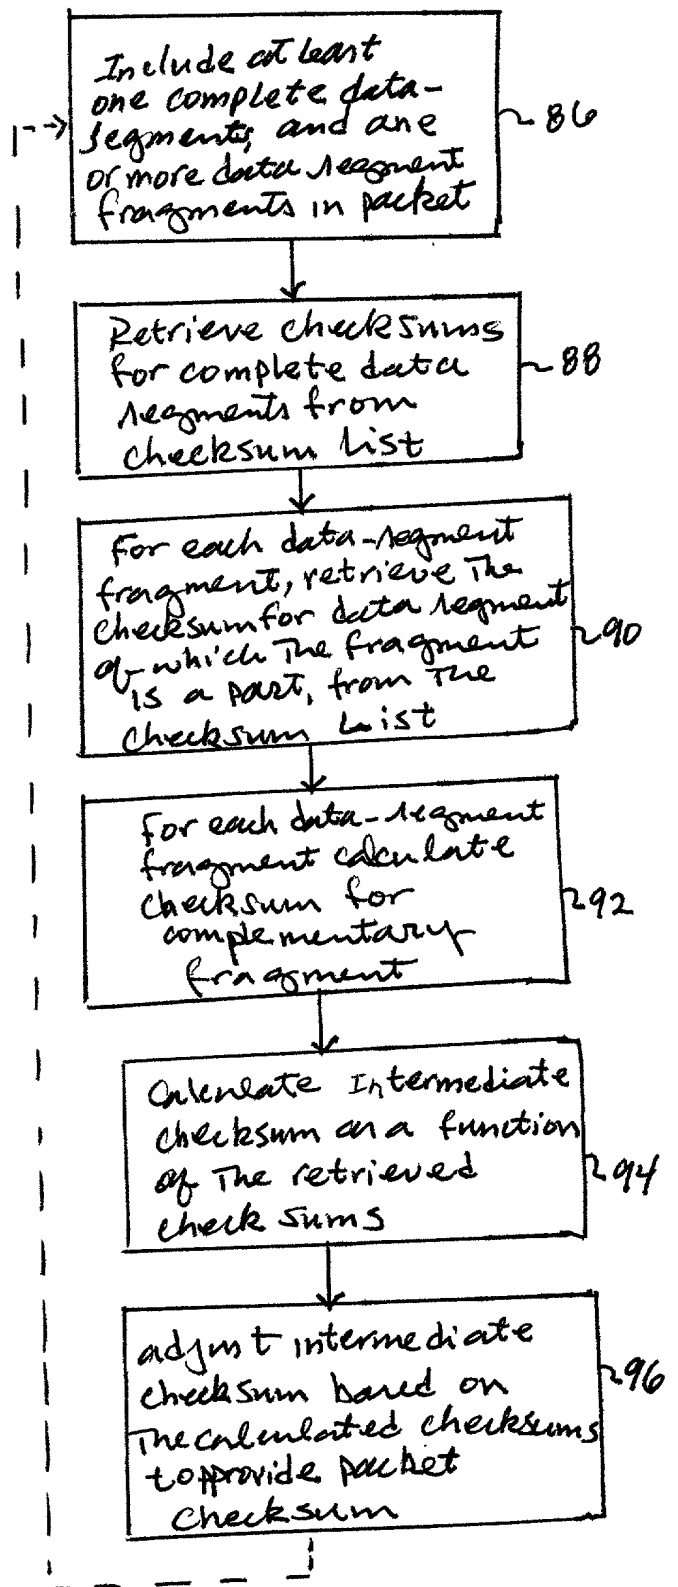 Include at least
one complete data-
segments, and one
or more data segment
fragments in packet
86
Retrieve checksums
for complete data
segments from
checksum list
88
For each data-segment
fragment, retrieve the
checksum for data segment
of which the fragment
is a part, from the
checksum List
90
For each data-segment
fragment calculate
checksum for
complementary
fragment
92
Calculate Intermediate
checksum as a function
of The retrieved
check sums
94
adjust intermediate
checksum based on
The calculated checksums
to provide packet
checksum
96